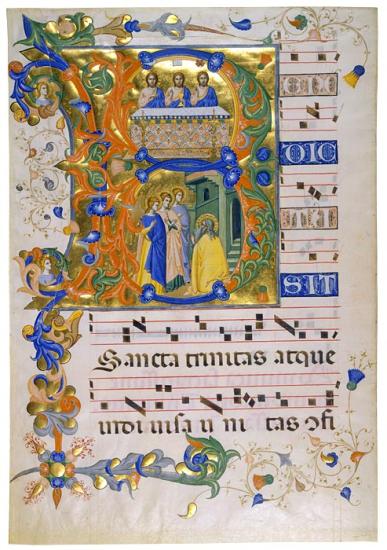 B
DIC
SIT
Sancta trinitas atque
indi uisa u ni tas ꝯfi